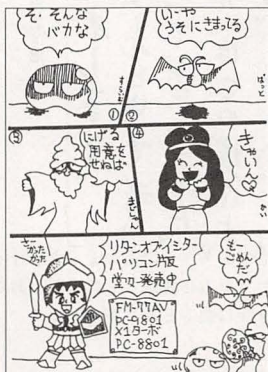 そ・そんな
バカな
すらいむ
①
いーや
うそにきまってる
ばっと
②
③
にげる
用意を
せねば
まじしゃん
④
きゃいん♡
かい
さー
かった
かった
リターンオブイシター
パソコン版
堂々発売中
FM-77AV
PC-9801
X1ターボ
PC-8801
もー
ごめん
だ